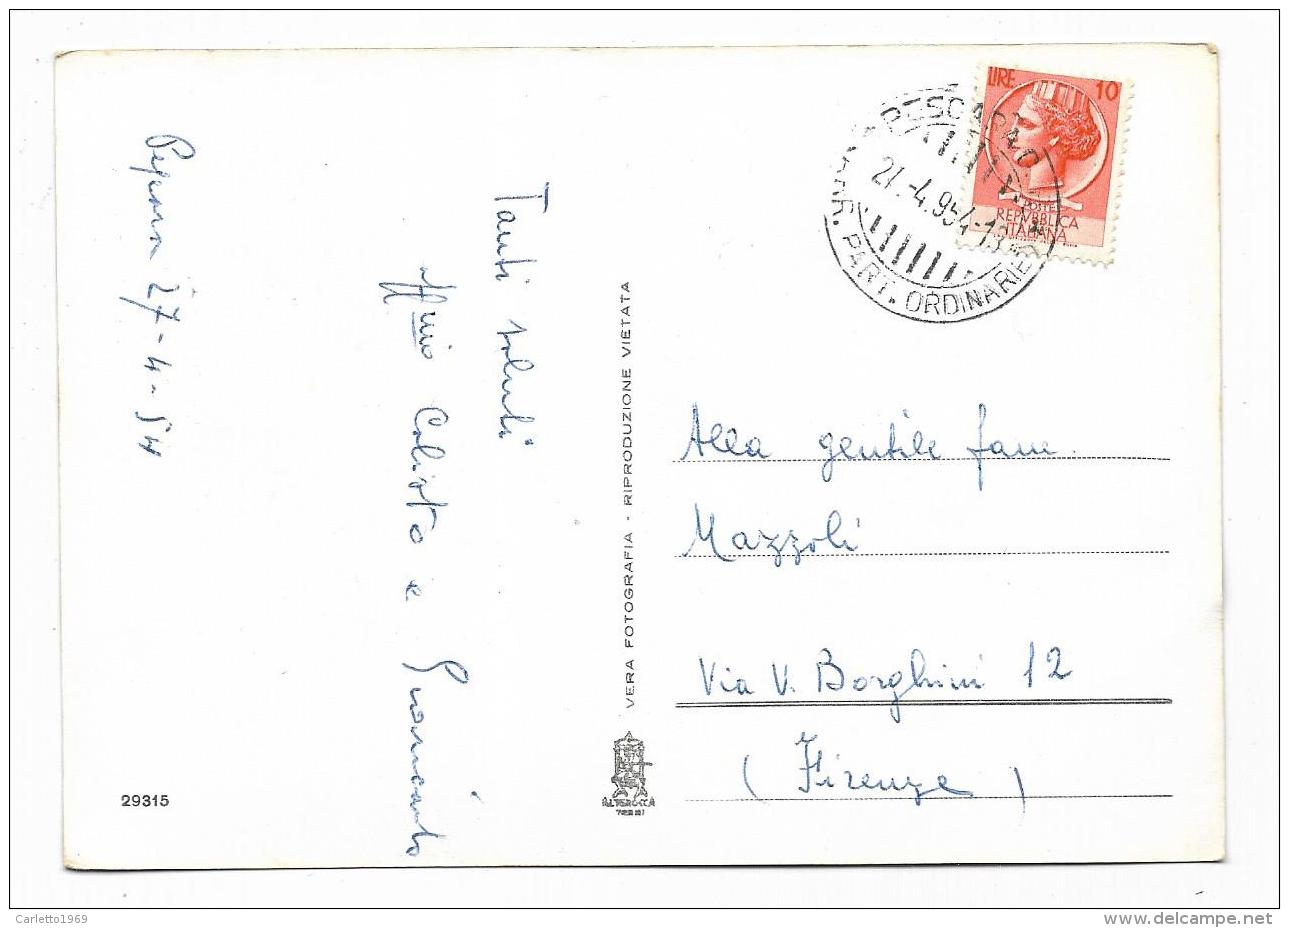 27-4-54
Tanti saluti
e Giancarlo
29315
VERA FOTOGRAFIA - RIPRODUZIONE VIETATA
TERNI
LIRE 10
POSTE
REPVBBLICA
ITALIANA
PESCARA
27.-4.954-13
CORR. PART. ORDINARIE
Alla gentile fam.
Mazzoli
Via V. Borghini 12
(Firenze)
Carletto1969
delcampe.net